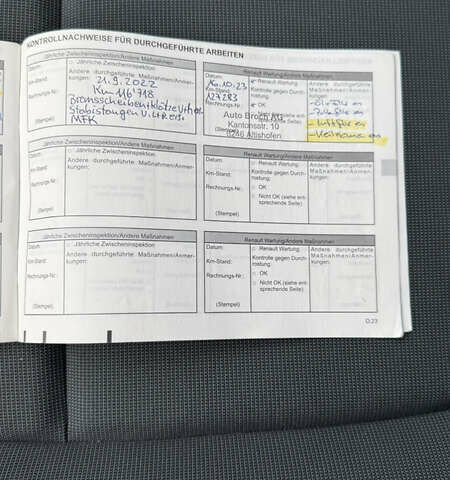 KONTROLLNACHWEISE FÜR DURCHGEFÜHRTE ARBEITEN
Jährliche Zwischeninspektion/Andere Maßnahmen
Datum:
□ Jährliche Zwischeninspektion
Andere durchgeführte Maßnahmen/Anmerkungen:
21.9.2022
Km-Stand:
Km 116'918
Rechnungs-Nr.:
MFK
(Stempel)
Renault Wartung/Andere Maßnahmen
Datum:
10.23
Renault Wartung
Km-Stand:
127283
Kontrolle gegen Durchrostung:
OK
Rechnungs-Nr.:
Andere durchgeführte
Maßnahmen/Anmerkungen:
Auto Broch AG
Kantonsstr. 10
6246 Altishofen
(Stempel)
Jährliche Zwischeninspektion/Andere Maßnahmen
Datum:
□ Jährliche Zwischeninspektion
Km-Stand:
Andere durchgeführte Maßnahmen/Anmer-
kungen:
Rechnungs-Nr.:
(Stempel)
Renault Wartung/Andere Maßnahmen
Datum:
□ Renault Wartung:
Andere durchgeführte
Km-Stand:
Kontrolle gegen Durch-
rostung:
Maßnahmen/Anmer-
kungen:
Rechnungs-Nr.:
□ OK
□ Nicht OK (siehe ent-
sprechende Seite)
(Stempel)
Jährliche Zwischeninspektion/Andere Maßnahmen
Datum:
□ Jährliche Zwischeninspektion
Km-Stand:
Andere durchgeführte Maßnahmen/Anmer-
kungen:
Rechnungs-Nr.:
(Stempel)
Renault Wartung/Andere Maßnahmen
Datum:
□ Renault Wartung:
Andere durchgeführte
Km-Stand:
Kontrolle gegen Durch-
rostung:
Maßnahmen/Anmer-
kungen:
Rechnungs-Nr.:
□ OK
□ Nicht OK (siehe ent-
sprechende Seite)
(Stempel)
D.23